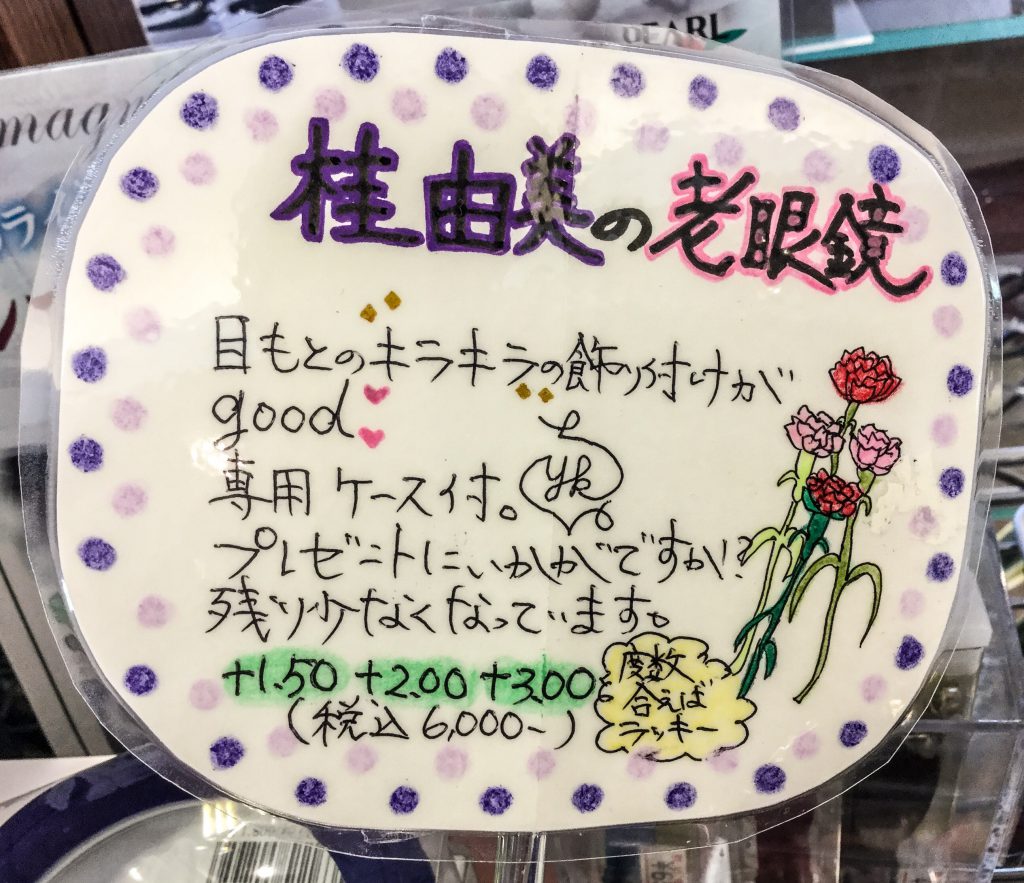 PEARL
桂由美の老眼鏡
目もとのキラキラの飾り付けが
good
専用ケース付。
yk
プレゼントにいかがですか!?
残り少なくなっています。
+1.50 +2.00 +3.00
(税込 6,000-)
度数
合えば
ラッキー